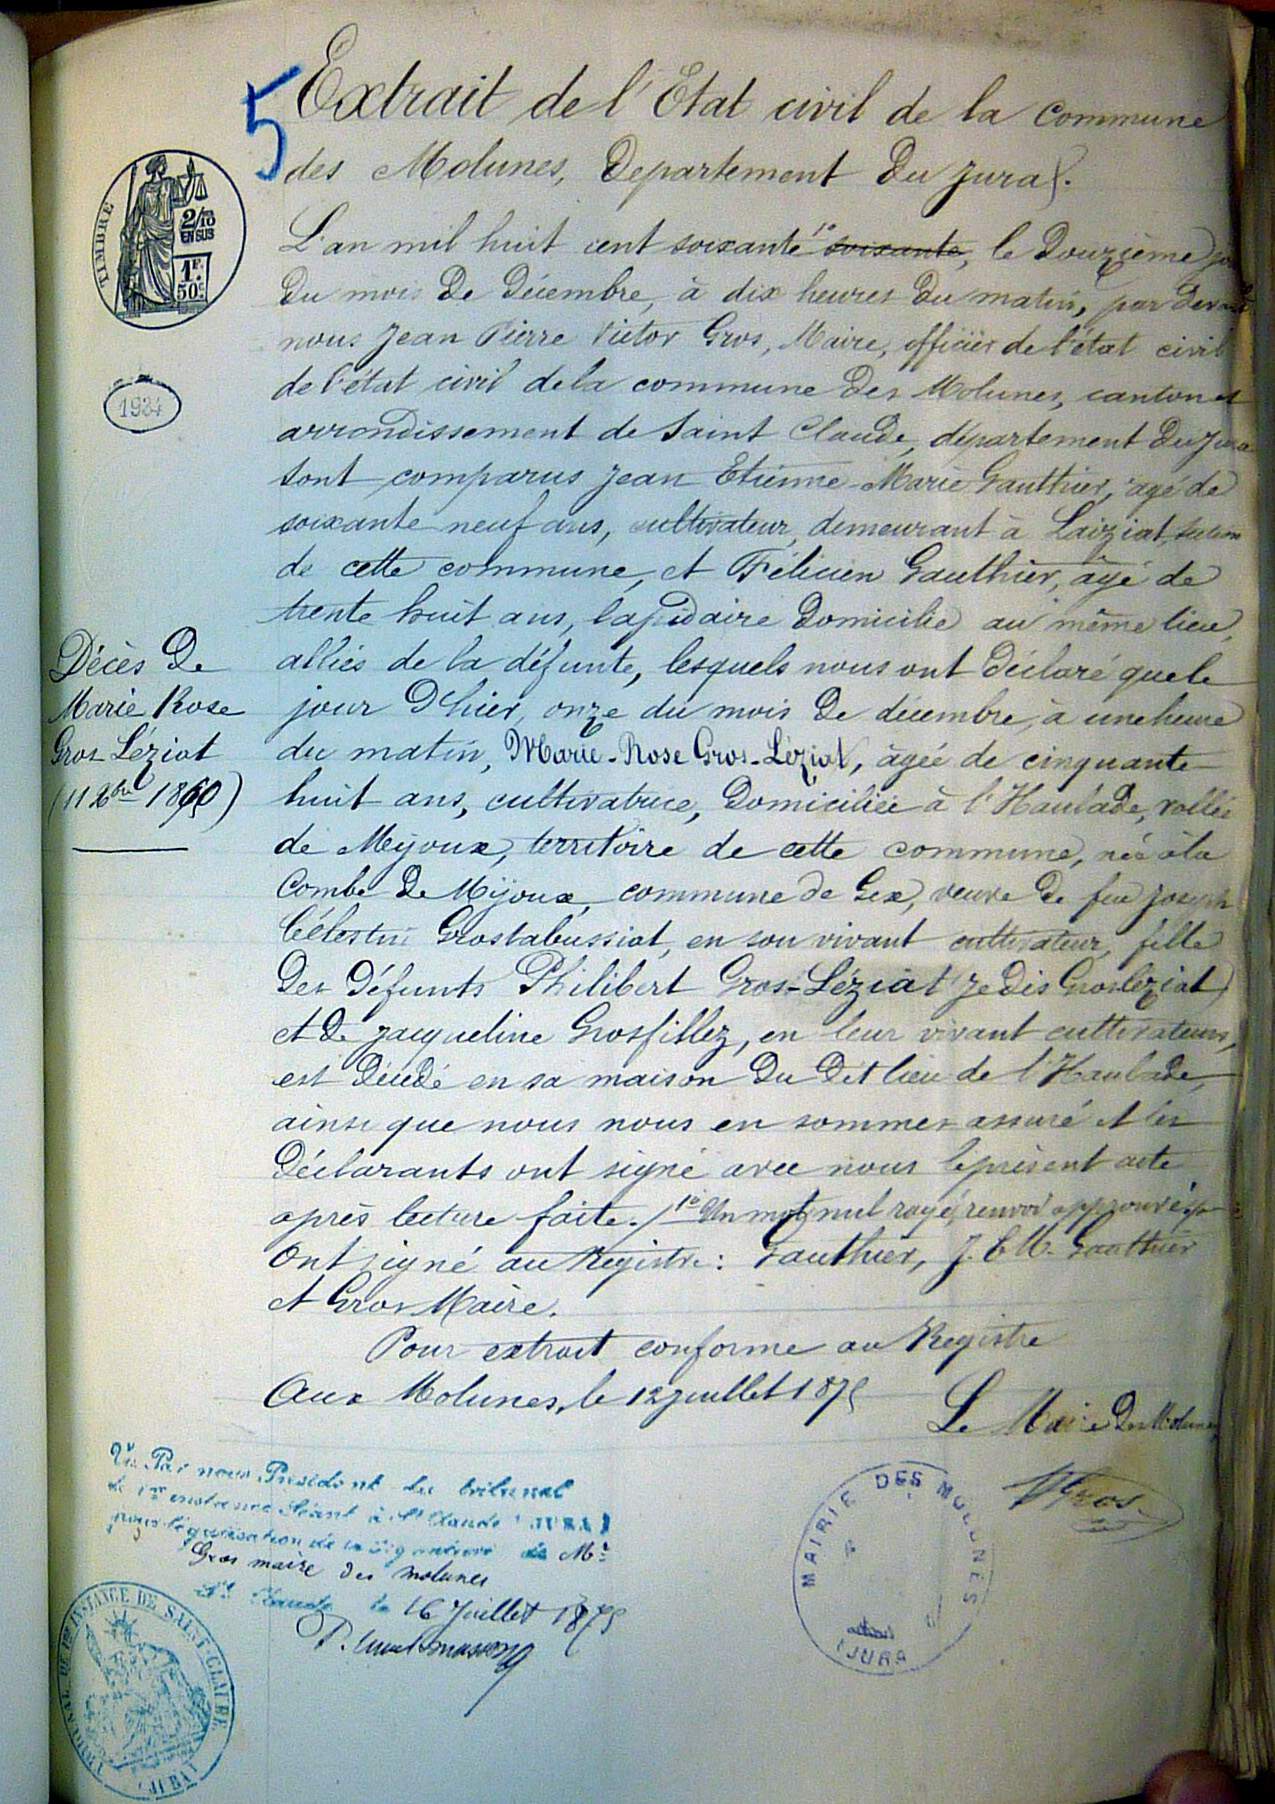 5
Extrait de l'Etat civil de la commune
des Molunes, Departement Du Jura.
TIMBRE
2/10
EN SUS
1F.
50c
1934
L'an mil huit cent soixante 1º soixante, le Douzième jour
Du mois De Décembre, à dix heures Du matin, par devant
nous Jean Pierre Victor Gros, Maire, officier de l'état civil
de l'état civil de la commune Des Molunes, canton et
arrondissement de Saint Claude, département Du Jura
Sont comparus Jean Etienne Marie Gauthier, agé de
soixante neuf ans, cultivateur, demeurant à Laiziat, section
de cette commune, et Félicien Gauthier, âgé de
trente huit ans, lapidaire Domicilié au même lieu,
alliés de la défunte, lesquels nous ont Déclaré que le
jour D'hier, onze du mois De décembre, à une heure
du matin, Marie-Rose Gros-Léziat, âgée de cinquante
huit ans, cultivatrice, Domiciliée à l'Haulade, vallée
de Mijoux, territoire de cette commune, née à la
Combe De Mijoux, commune de Gex, veuve De feu Joseph
Célestin Grostabussiat, en son vivant cultivateur, fille
Des Défunts Philibert Gros-Léziat (je dis Grosleziat)
et De Jacqueline Grosfillez, en leur vivant cultivateurs,
est Décédé en sa maison Du Dit lieu de l'Haulade,
ainsi que nous nous en sommes assuré et les
Déclarants ont signé avec nous le présent acte
après lecture faite. / 1º Un mot nul rayé, renvoi approuvé
Ont signé au Registre : Gauthier, J. E. M. Gauthier
et Gros Maire.
Décès De
Marie Rose
Gros Léziat
(11 Xbre 1860)
Pour extrait conforme au Registre
Aux Molunes, le 12 juillet 1875
Le Maire Des Molunes
VGros
Vu Par nous Président du tribunal
de 1re instance Séant à St Claude (JURA)
pour légalisation de la Signature de Mr
Gros maire des molunes
St Claude le 16 Juillet 1875
MAIRIE DES MOLUNES
(JURA)
TRIBUNAL DE 1RE INSTANCE DE SAINT-CLAUDE
(JURA)